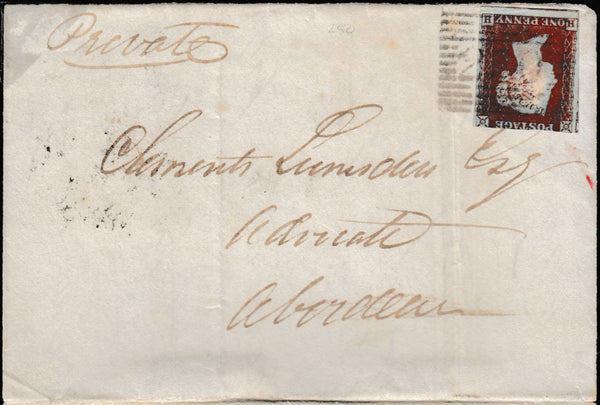 Private
250
H ONE PENNY H
POSTAGE
Clements Lumsden Esq
Advocate
Aberdeen